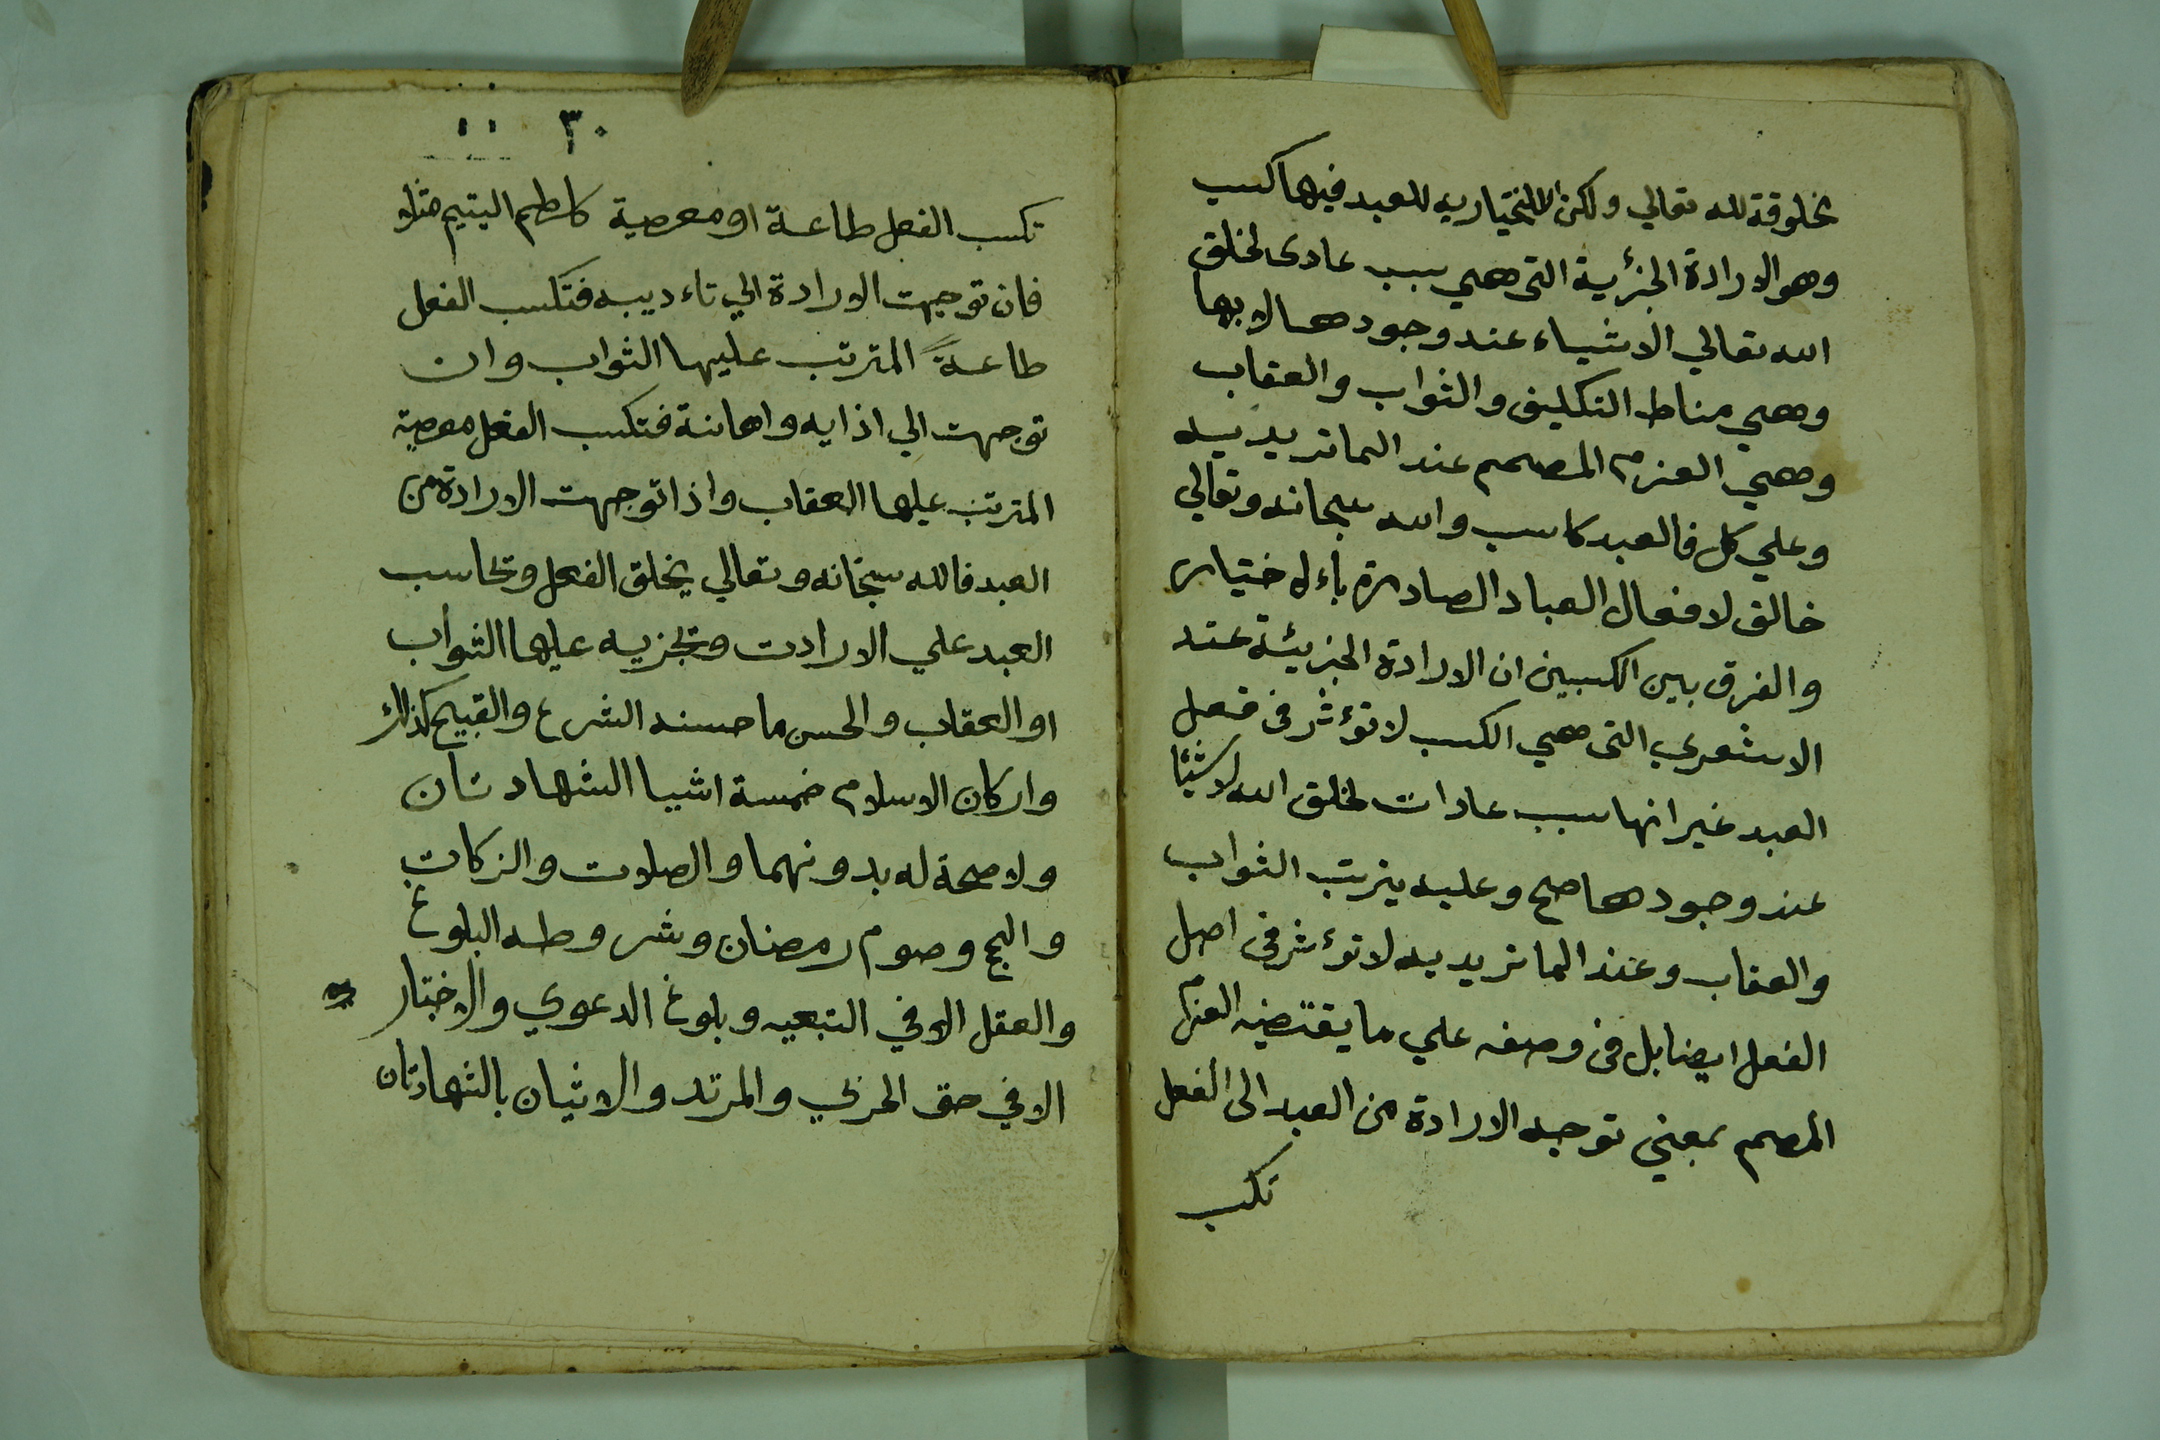 مخلوقة لله تعالي ولكن الاختياريه للعبد فيها كسب
وهو الارادة الجزئية التى هي سبب عادى لخلق
الله تعالي الاشياء عند وجودها لا بها
وهي مناط التكليف والثواب والعقاب
وهي العزم المصمم عند الماتريديه
وعلي كل فالعبد كاسب والله سبحانه وتعالي
خالق لافعال العباد الصادرة باءلاختيار
والفرق بين الكسبين ان الارادة الجزئية عند
الاشعري التى هي الكسب لا تؤثر فى فعل
العبد غير انها سبب عادات لخلق الله لاشيئا
عند وجودها صح وعليه يترتب الثواب
والعقاب وعند الماتريديه لا تؤثر فى اصل
الفعل ايضا بل فى وصفه علي ما يقتضيه العزم
المصمم بمعني توجيه الارادة من العبد الى الفعل
تكسب
٣٠ ١١
تكسب الفعل طاعة او معصية كلطم اليتيم مثلا
فان توجهت الارادة الي تاءديبه فتكسب الفعل
طاعةً المترتب عليها الثواب وان
توجهت الي اذايه واهانة فتكسب الفعل معصية
المترتب عليها العقاب واذا توجهت الارادة من
العبد فالله سبحانه وتعالي يخلق الفعل ويحاسب
العبد علي الارادت ويجزيه عليها الثواب
او العقاب والحسن ما حسنه الشرع والقبيح كذلك
واركان الاسلام خمسة اشيا الشهادتان
ولا صحة له بدونهما والصلات والزكات
والحج وصوم رمضان وشروطه البلوغ
والعقل الا في التبعيه وبلوغ الدعوي والاختبار
الا في حق الحربي والمرتد والاتيان بالشهادتان